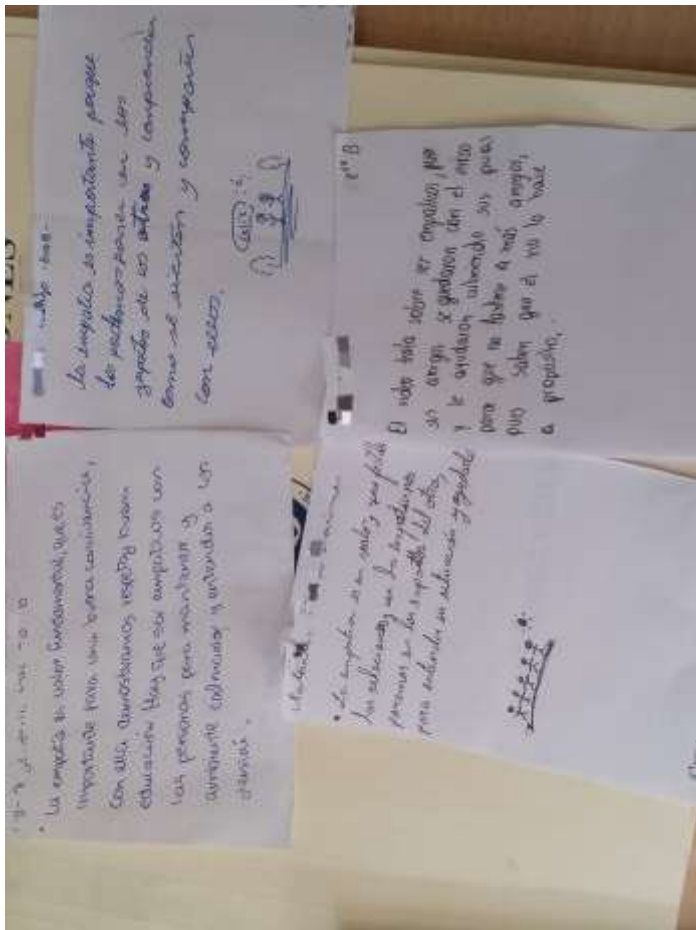 • La empatía es valor fundamental, que es
importante para una buena convivencia,
con ella demostramos respeto y buena
educación. Hay que ser empáticos con
las personas para mantener y
ambiente y entender a los
demás.
La empatía es importante porque
los podemos poner en los
zapatos de los otros y comprender
como se sienten y compartir
con ellos.
• La empatía es un valor,
las relaciones, es la importancia
ponernos en los zapatos del otro,
para entender su situación y ayudarlo
6to B
El video trata sobre ser empáticos, por
sus amigos se quedaron con el erizo
y le ayudaron cubriendo sus puas
para que no lastime a más amigos,
pues saben que él no lo hace
a proposito.